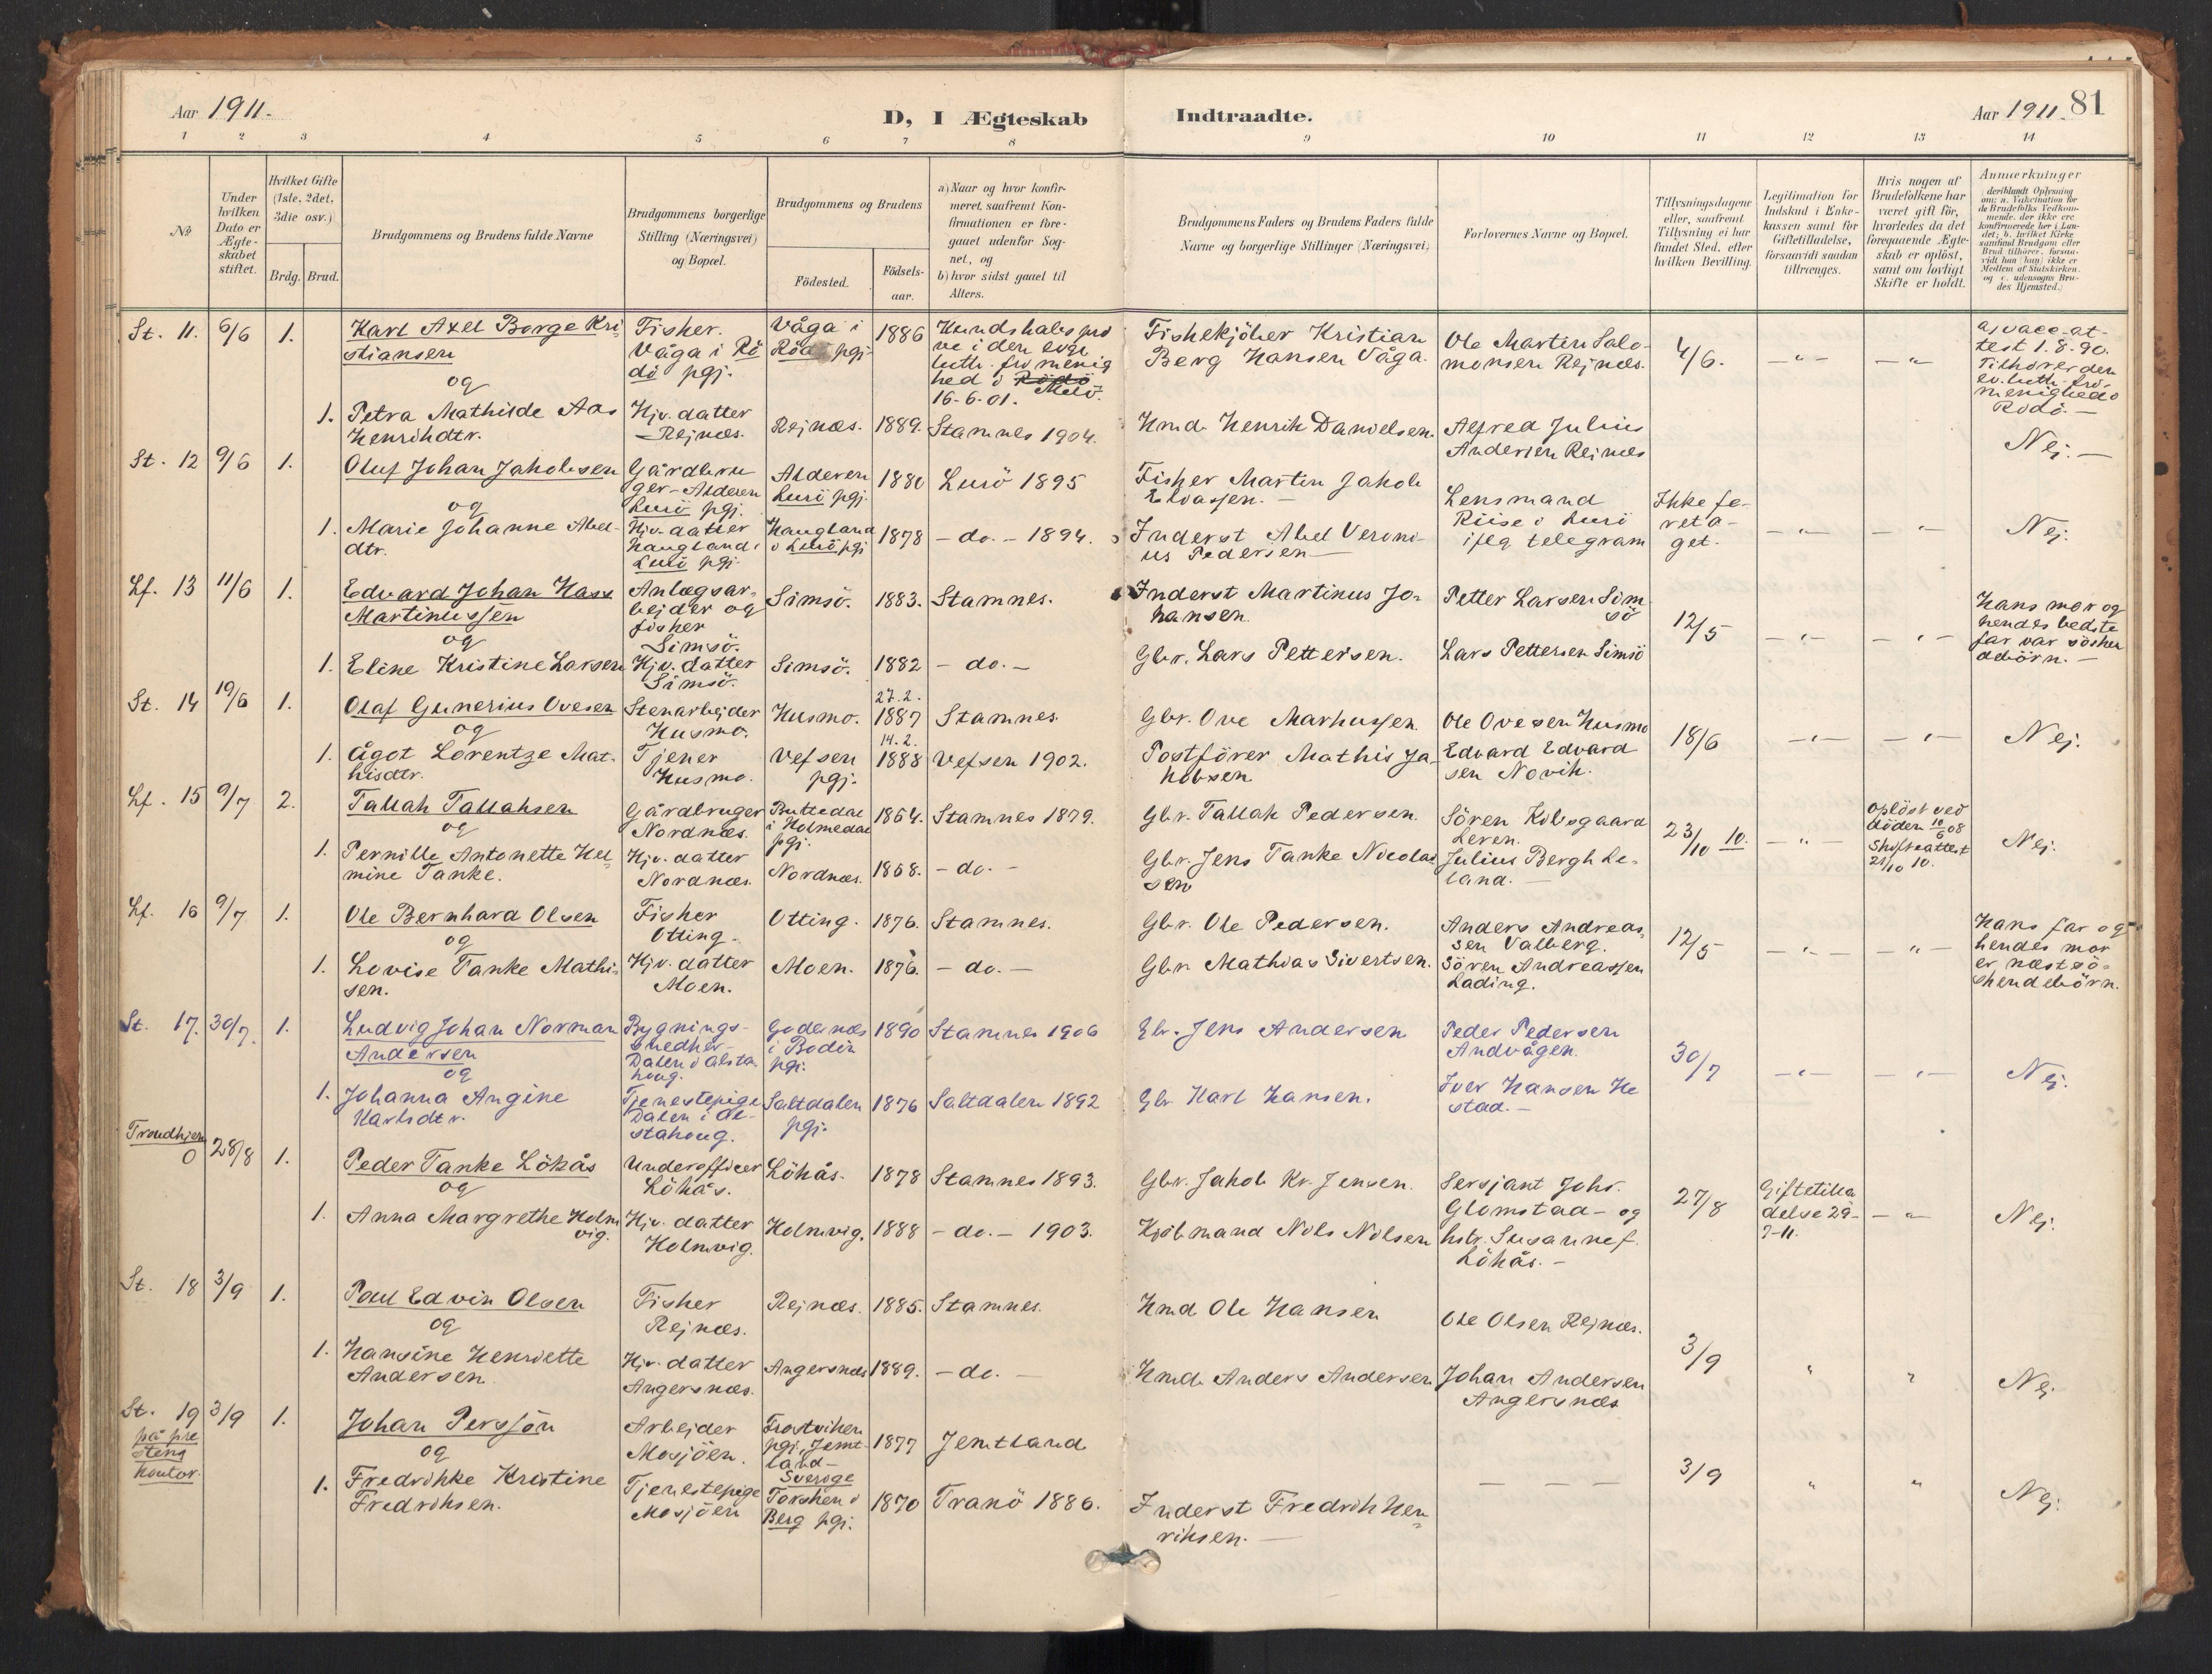 Aar 1911.
D, I Ægteskab Indtraadte.
Aar 1911. 81
1 2 3 4 5 6 7 8 9 10 11 12 13 14
No
Under hvilken Dato er Ægteskabet stiftet.
Hvilket Gifte (1ste, 2det, 3die osv.)
Brdg. Brud.
Brudgommens og Brudens fulde Navne
Brudgommens borgerlige Stilling (Næringsvei) og Bopæl.
Brudgommens og Brudens
Födested.
Födsels-aar.
a) Naar og hvor konfir-
meret, saafremt Kon-
firmationen er fore-
gaaet udenfor Sog-
net, og
b) hvor sidst gaaet til
Alters.
Brudgommens Faders og Brudens Faders fulde
Navne og borgerlige Stillinger (Næringsvei)
Forlovernes Navne og Bopæl.
Tillysningsdagene
eller, saafremt
Tillysning ei har
fundet Sted, efter
hvilken Bevilling.
Legitimation for
Indskud i Enke-
kassen samt for
Giftetilladelse,
forsaavidt saadan
tiltrænges.
Hvis nogen af
Brudefolkene har
været gift för,
hvorledes da det
foregaaende Ægte-
skab er oplöst,
samt om lovligt
Skifte er holdt.
Anmærkninger
deriblandt Oplysning
om: a. Vakcination for
de Brudefolks Vedkom-
mende, der ikke ere
konfirmerede her i Lan-
det; b. hvilket Kirke-
samfund Brudgom eller
Brud tilhörer, forsaa-
vidt han (hun) ikke er
Medlem af Statskirken,
og c. udensogns Bru-
des Hjemsted.)
St. 11. 6/6 1. Karl Axel Borge Kri
stiansen
og
Fisker.
Våga i Rö
dö pgj.
Våga i
Rödö pgj.
1886
Kundskabs prö
ve i den evg.
luth. frimenig
hed i Rödö
Melö.
16-6-01.
Fiskekjöber Kristian
Berg Hansen Våga.
Ole Martin Salo-
monsen Rejnæs.
4/6.
a) vacc. at-
test 1.8.90.
Tilhörer den
ev. luth. fri-
menighed i
Rödö.
1. Petra Mathilde Aas
Henrikdtr.
Hjv. datter
Rejnæs.
Rejnæs. 1889. Stamnes 1904.
Kmd. Henrik Danielsen.
Alfred Julius
Andersen Reinæs
Nej.
St. 12 9/6 1. Oluf Johan Jakobsen
og
Gårdbru
ger - Alderen
Lurö pgj.
Alderen
Lurö pgj.
1880 Lurö 1895
Fisker Martin Jakob
Eliassen.
Lensmand
Riise i Lurö
iflg telegram
Ikke fo-
reta-
get.
Nej.
1. Marie Johanne Abel-
dtr.
Hjv. datter
Haugland i
Lurö pgj.
Haugland
i Lurö pgj
1878 - do. - 1894.
Inderst Abel Veroni-
us Pedersen
Lf. 13 11/6 1. Edvard Johan Hass
Martinussen
og
Anlægsar-
bejder og
fisker
Simsö.
Simsö. 1883. Stamnes.
Inderst Martinus Jo-
hansen.
Petter Larsen Sim
sö
12/5
Hans mor og
hendes bedste
far var sösken
debörn.
1. Eline Kristine Larsen
Hjv. datter
Simsö.
Simsö. 1882 - do. -
Gbr. Lars Pettersen.
Lars Pettersen Simsö
St. 14 19/6 1. Olaf Gunerius Ovesen
og
Stenarbejder
Husmo.
Husmo.
27.2.
1887
Stamnes.
Gbr. Ove Markussen.
Ole Ovesen Husmo
18/6
Nej.
1. Ågot Lorentze Mat-
hisdtr.
Tjener
Husmo.
Vefsen
pgj.
14.2.
1888
Vefsen 1902.
Postförer Mathis Ja-
kobsen
Edvard Edvard
sen Novik.
Lf. 15 9/7 2. Tallak Tallaksen
og
Gårdbruger
Nordnæs.
Buttedal
i Holmedal
pgj.
1864. Stamnes 1879.
Gbr. Tallak Pedersen.
Sören Kibsgaard
Leren.
23/10 10.
oplöst ved
döden 10/6 08
Skifteattest
21/10 10.
Nej.
1. Pernille Antonette Hel-
mine Tanke.
Hjv. datter
Nordnæs.
Nordnæs. 1868. - do. -
Gbr. Jens Tanke Nicolai
sen
Julius Bergh Le-
land.
Lf. 16 9/7 1. Ole Bernhard Olsen
og
Fisker
Otting.
Otting. 1876. Stamnes.
Gbr. Ole Pedersen.
Anders Andreas-
sen Valberg.
12/5
Hans far og
hendes mor
er næstsö-
skendebörn.
1. Lovise Tanke Mathi-
sen.
Hjv. datter
Moen.
Moen. 1876. - do. -
Gbr. Mathias Sivertsen.
Sören Andreassen
Lading.
St. 17. 30/7. 1. Ludvig Johan Norman
Andersen
og
Bygnings-
snedker
Dalen i Alsta
houg.
Godenæs
i Bodin
pgj.
1890 Stamnes 1906
Gbr. Jens Andersen
Peder Pedersen
Andvågen.
30/7
Nej.
1. Johanna Angine
Karlsdtr.
Tjenestepige
Dalen i Al-
stahoug.
Saltdalen
pgj.
1876 Saltdalen 1892
Gbr Karl Hansen.
Iver Hansen He
stad.
Trondhjem
0 28/8 1. Peder Tanke Lökås
og
Underofficer
Lökås.
Lökås. 1878 Stamnes 1893.
Gbr. Jakob Kr. Jensen.
Sersjant Johr.
Glomstad - og
hstr. Susanne f.
Lökås.
27/8
Giftetilla
delse 29-
7-11.
Nej.
1. Anna Margrethe Holm
vig.
Hjv. datter
Holmvig.
Holmvig. 1888 - do. - 1903.
Kjöbmand Nils Nilsen
St. 18 3/9 1. Paul Edvin Olsen
og
Fisker
Rejnæs.
Rejnæs. 1885. Stamnes.
Kmd Ole Hansen
Ole Olsen Rejnæs.
3/9
Nej.
1. Hansine Henriette
Andersen
Hjv. datter
Angersnæs.
Angersnæs 1889. - do. -
Kmd. Anders Andersen
Johan Andersen
Angersnæs
St. 19 3/9 1.
på pre
stens
kontor.
Johan Persson
og
Arbejder
Mosjöen.
Frostviken
pgj. Jemt-
land -
Sverige
1877 Jemtland
3/9
Nej.
1. Fredrikke Kristine
Fredriksen.
Tjenestepige
Mosjöen
Torsken i
Berg pgj.
1870 Tranö 1886.
Inderst Fredrik Hen-
riksen.